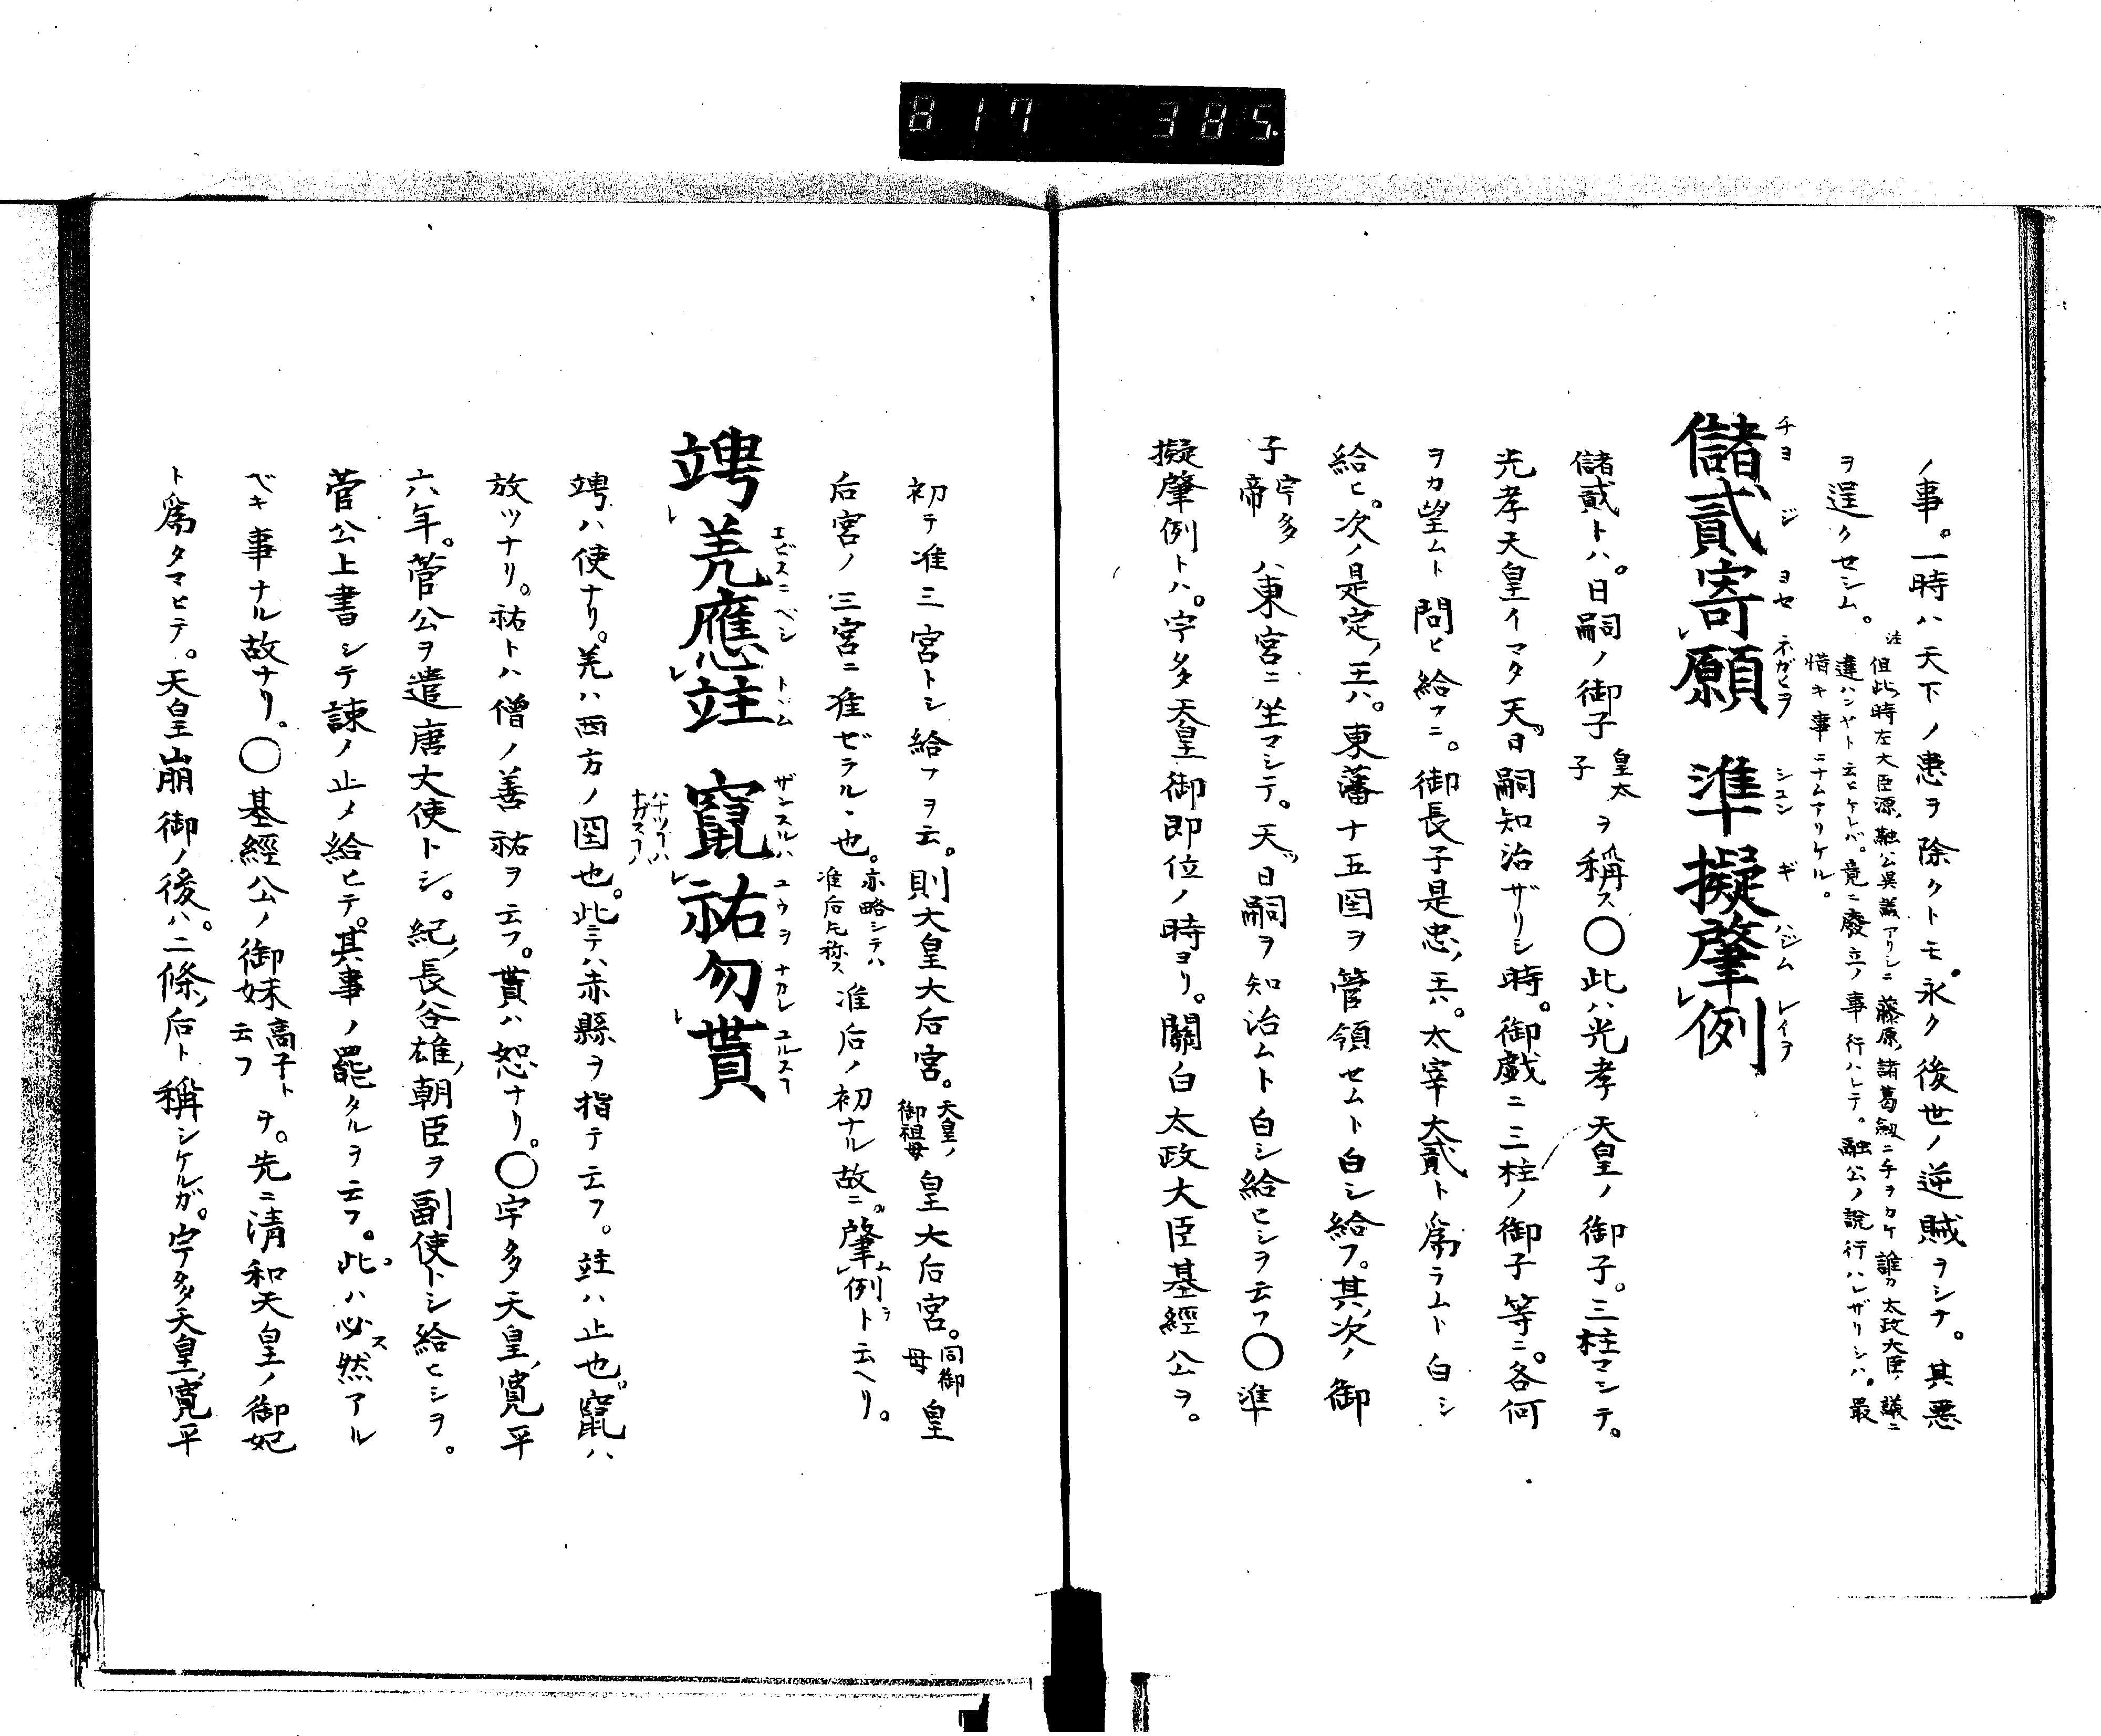 817 385.
ノ事。一時ハ天下ノ患ヲ除クトモ。永ク後世ノ逆賊ヲシテ。其悪
ヲ逞クセシム。
注
但此時左大臣源ノ融公異議アリシニ藤原ノ諸葛劔ニ手ヲカケ誰カ太政大臣ノ議ニ
違ハンヤト云ヒケレバ。竟ニ廢立ノ事行ハレテ。融公ノ説行ハレザリシハ。最
惜キ事ニナムアリケル。
チヨ ジ ヨセ ネガヒヲ シユン ギ ハジム レイヲ
儲貳寄レ願 準擬肇レ例
儲貳トハ。日嗣ノ御子皇太子ヲ稱ス〇此ハ光孝天皇ノ御子。三柱マシテ。
光孝天皇イマタ天ツ日嗣知治ザリシ時。御戯ニ三柱ノ御子等ニ。各何
ヲカ望ムト問ヒ給フニ。御長子是忠ノ王ハ。太宰大貳ト爲ラムト白シ
給ヒ。次ノ是定ノ王ハ。東藩十五国ヲ管領セムト白シ給フ。其ノ次ノ御
子宇多帝ハ東宮ニ坐マシテ。天ツ日嗣ヲ知治ムト白シ給ヒシヲ云フ〇準
擬肇例トハ。宇多天皇御即位ノ時ヨリ。關白太政大臣基經公ヲ。
初テ准三宮トシ給フヲ云。則大皇大后宮。天皇ノ御祖母皇大后宮。同御母皇
后宮ノ三宮ニ准ゼラルヽ也。亦略シテハ准后ト称ス准后ノ初ナル故ニ。肇ムレ例ヲト云ヘリ。
エビスニ ベシ トヾム ザンスルハ ユウヲ ナカレ ユルスコ
聘レ羌應レ竚 竄レ祐勿レ貰
ハナツコハ
ナガスコハ
聘ハ使ナリ。羌ハ西方ノ国也。此ニテハ赤縣ヲ指テ云フ。竚ハ止也。竄ハ
放ツナリ。祐トハ僧ノ善祐ヲ云フ。貰ハ恕ナリ。〇宇多天皇ノ寛平
六年。菅公ヲ遣唐大使トシ。紀ノ長谷雄ノ朝臣ヲ副使トシ給ヒシヲ。
菅公上書シテ諫ノ止メ給ヒテ。其事ノ罷タルヲ云フ。此ハ必ス然アル
ベキ事ナル故ナリ。〇基經公ノ御妹高子ト云フヲ。先ニ清和天皇ノ御妃
ト爲タマヒテ。天皇崩御ノ後ハ。二條ノ后ト稱シケルガ。宇多天皇ノ寛平